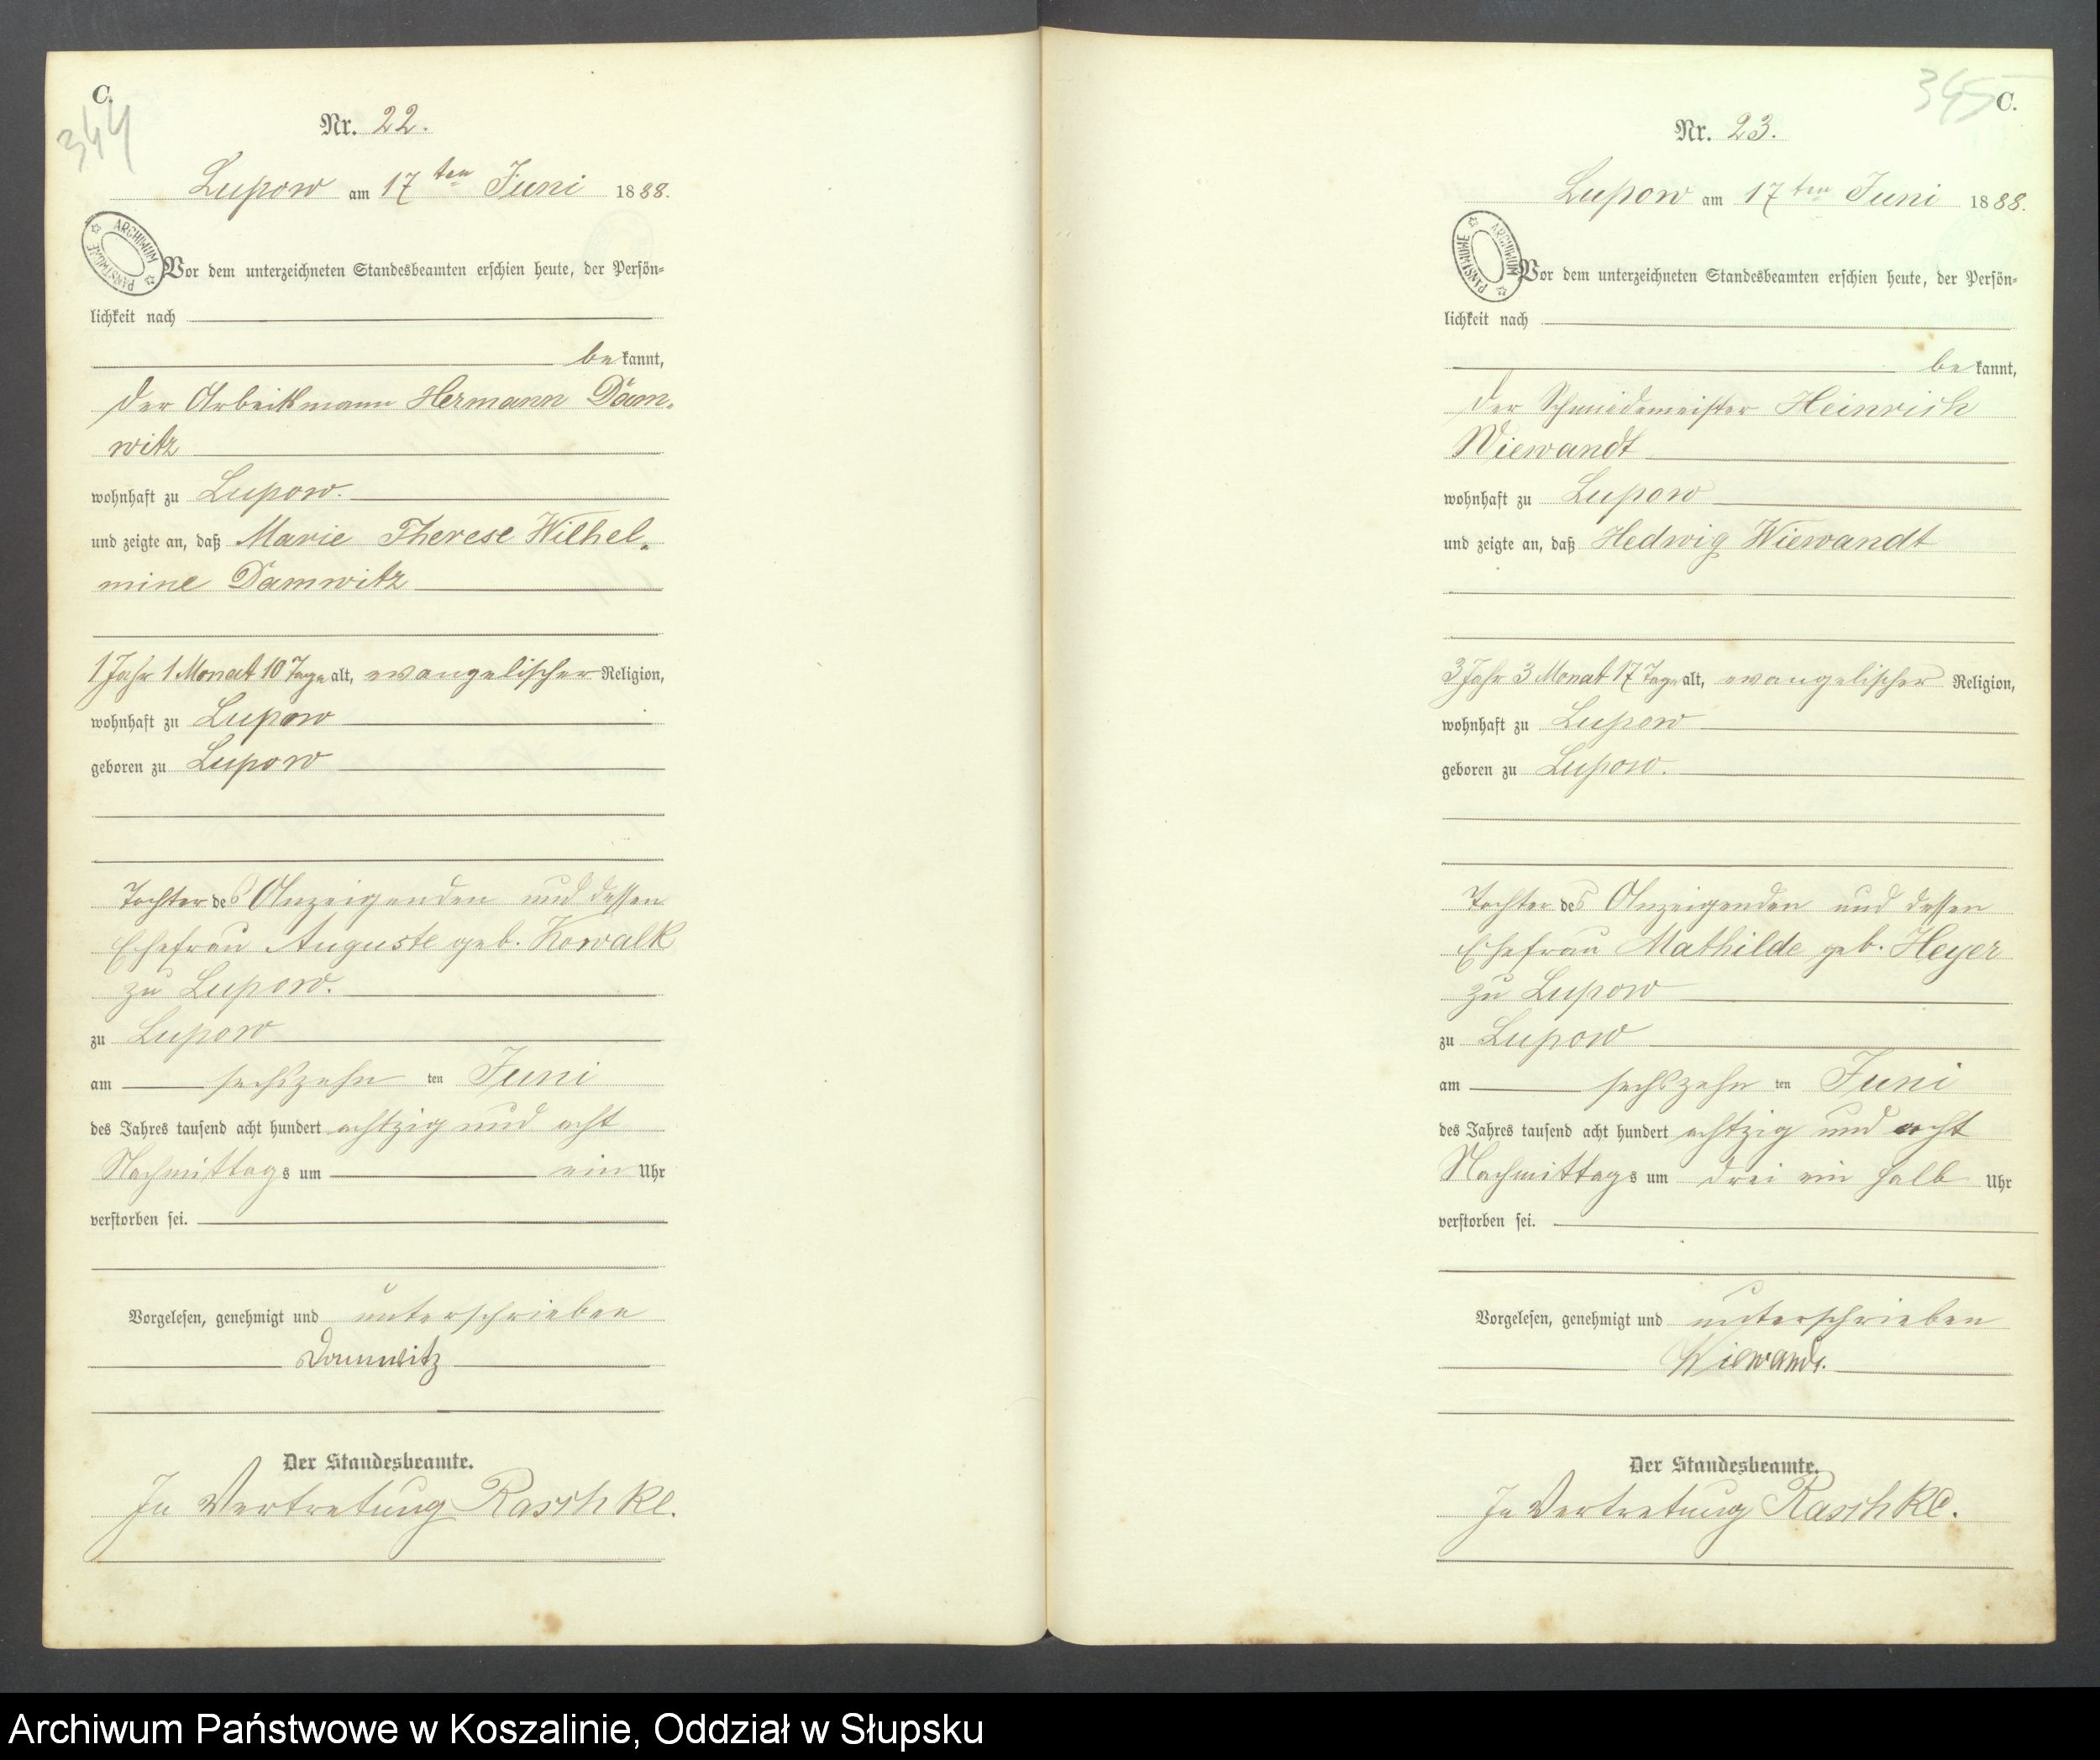 C.
344
Nr. 22.
Lupow am 17ten Juni 1888.
ARCHIWUM PAŃSTWOWE
Vor dem unterzeichneten Standesbeamten erschien heute, der Persön-
lichkeit nach
be kannt,
der Arbeitsmann Hermann Dam-
witz
wohnhaft zu Lupow.
und zeigte an, daß Marie Therese Wilhel-
mine Damwitz
1 Jahr 1 Monat 10 Tage alt, evangelischer Religion,
wohnhaft zu Lupow
geboren zu Lupow
Tochter des Anzeigenden und dessen
Ehefrau Auguste geb. Kowalk
zu Lupow.
zu Lupow
am sechszehn ten Juni
des Jahres tausend acht hundert achtzig und acht
Nachmittags um ein Uhr
verstorben sei.
Vorgelesen, genehmigt und unterschrieben
Damwitz
Der Standesbeamte.
In Vertretung Raschke.
345 C.
Nr. 23.
Lupow am 17ten Juni 1888.
ARCHIWUM PAŃSTWOWE
Vor dem unterzeichneten Standesbeamten erschien heute, der Persön-
lichkeit nach
be kannt,
der Schmiedemeister Heinrich
Wiewandt
wohnhaft zu Lupow
und zeigte an, daß Hedwig Wiewandt
3 Jahr 3 Monat 17 Tage alt, evangelischer Religion,
wohnhaft zu Lupow
geboren zu Lupow.
Tochter des Anzeigenden und dessen
Ehefrau Mathilde geb. Heyer
zu Lupow
zu Lupow
am sechszehn ten Juni
des Jahres tausend acht hundert achtzig und acht
Nachmittags um drei ein halb Uhr
verstorben sei.
Vorgelesen, genehmigt und unterschrieben
Wiewandt.
Der Standesbeamte.
In Vertretung Raschke.
Archiwum Państwowe w Koszalinie, Oddział w Słupsku